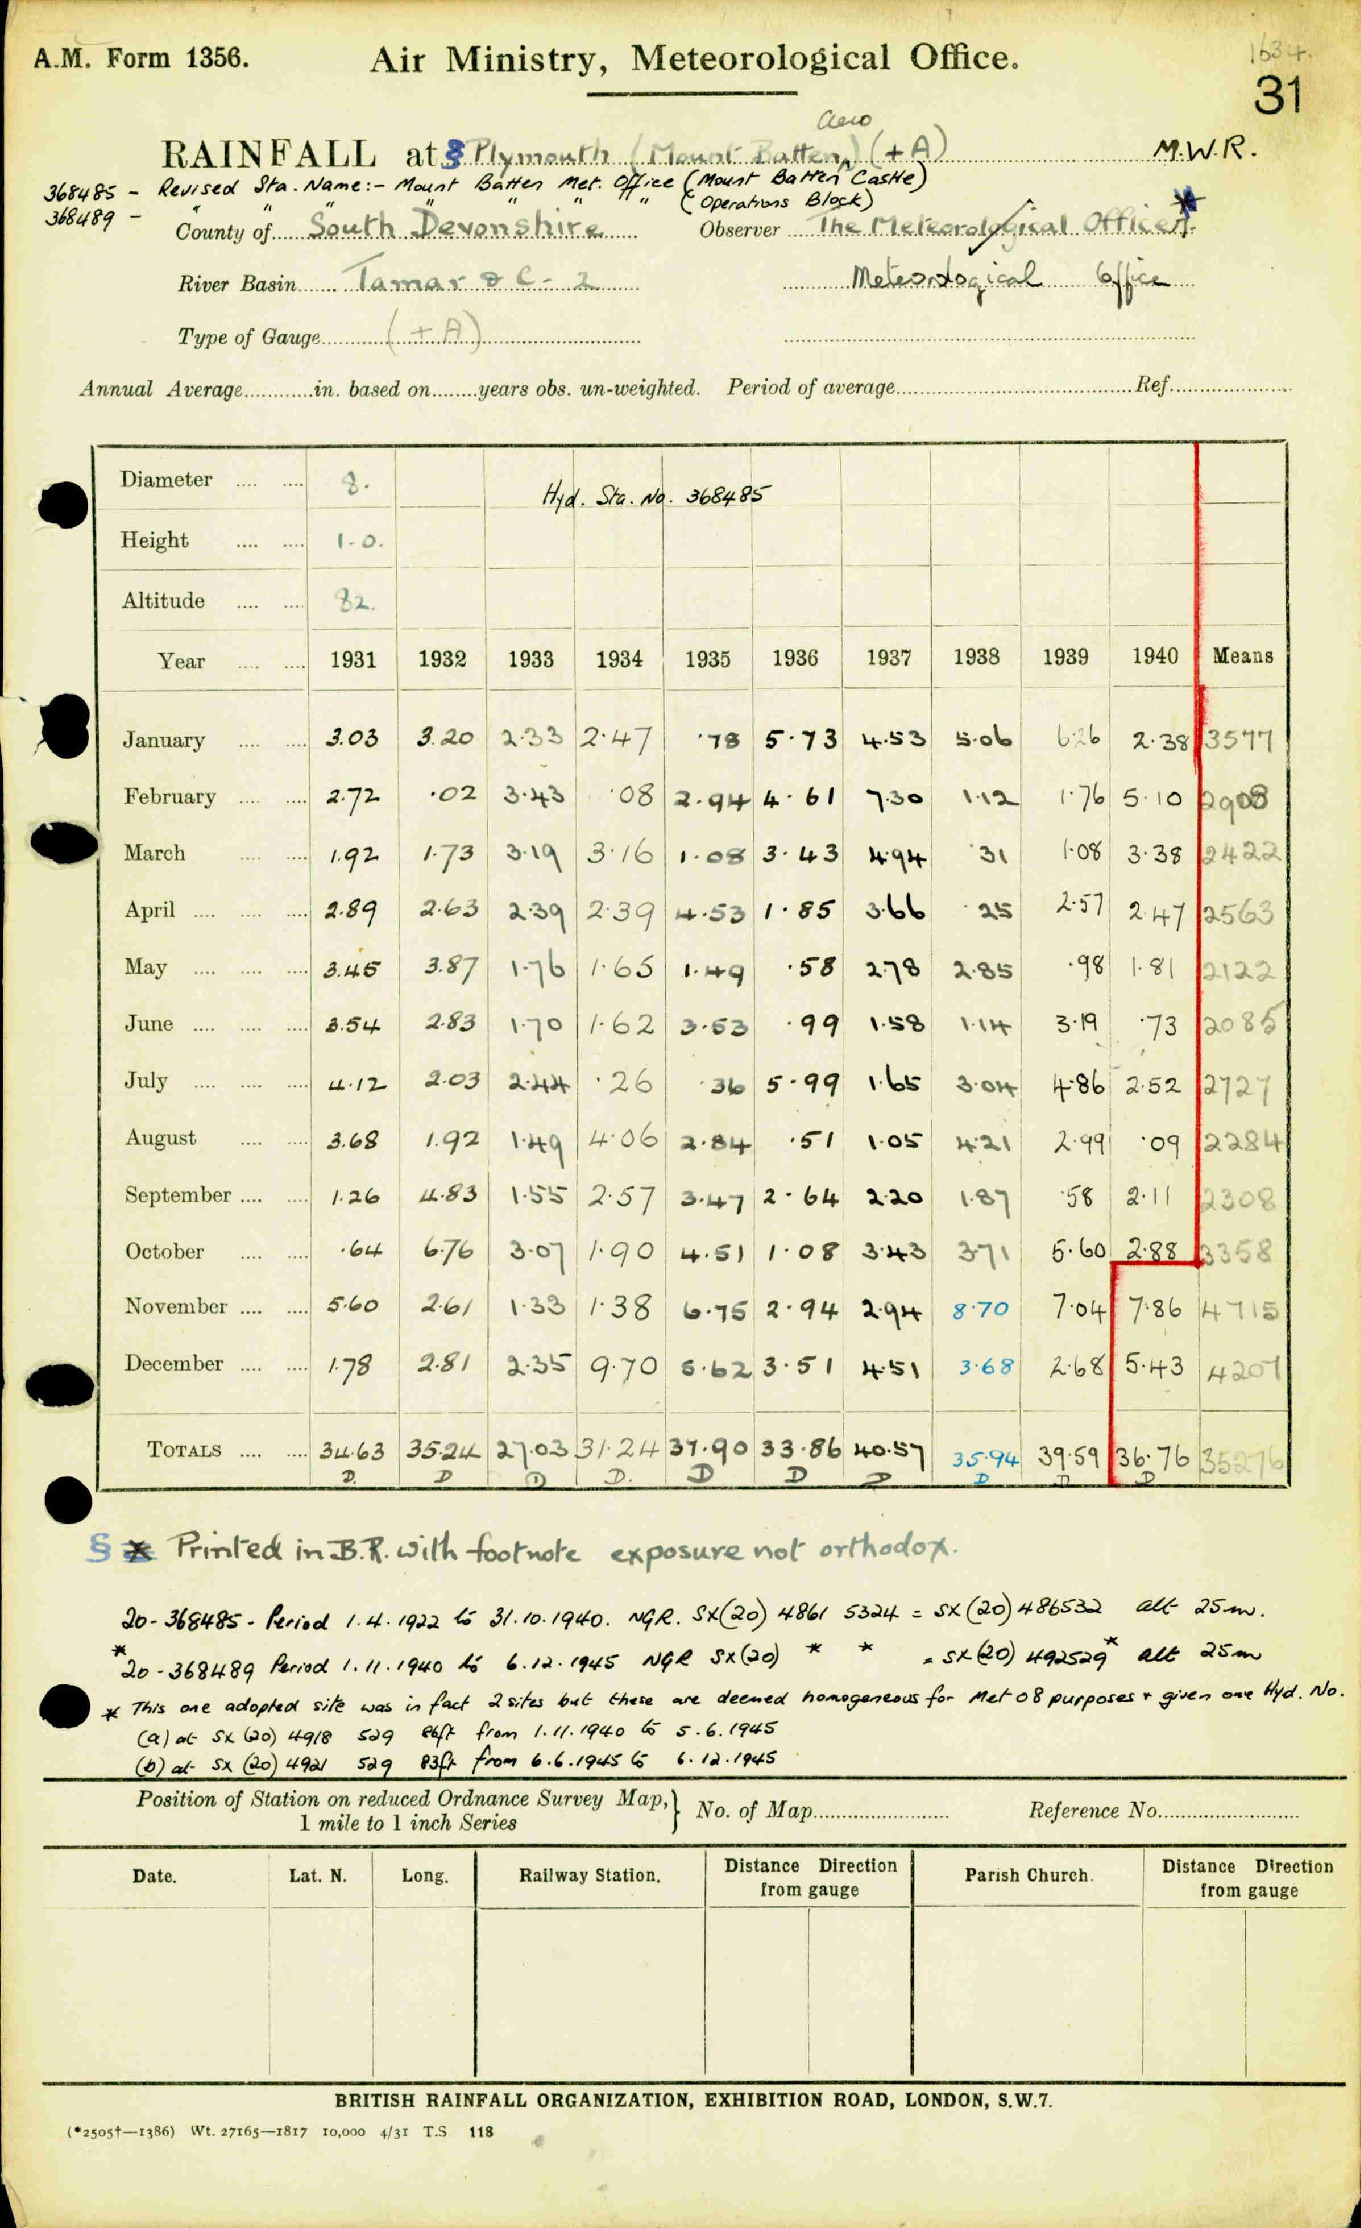 1634.
A.M. Form 1356. Air Ministry, Meteorological Office. 31
RAINFALL at § Plymouth (Mount Batten) Aero (+A) M.W.R.
368485 - Revised Sta. Name:- Mount Batten Met. Office (Mount Batten Castle)
368489 - " " " " " " " (Operations Block)
County of South Devonshire Observer The Meteorological Officer *
River Basin Tamar & C - 2 Meteorological Office
Type of Gauge (+A)
Annual Average in. based on years obs. un-weighted. Period of average Ref.
Diameter 8. Hyd. Sta. No. 368485
Height 1-0.
Altitude 82.
Year 1931 1932 1933 1934 1935 1936 1937 1938 1939 1940 Means
January 3.03 3.20 2.33 2.47 .78 5.73 4.53 5.06 6.26 2.38 3577
February 2.72 .02 3.43 .08 2.94 4.61 7.30 1.12 1.76 5.10 2908
March 1.92 1.73 3.19 3.16 1.08 3.43 4.94 .31 1.08 3.38 2422
April 2.89 2.63 2.39 2.39 4.53 1.85 3.66 .25 2.57 2.47 2563
May 3.45 3.87 1.76 1.65 1.49 .58 2.78 2.85 .98 1.81 2122
June 3.54 2.83 1.70 1.62 3.53 .99 1.58 1.14 3.19 .73 2085
July 4.12 2.03 2.44 .26 .36 5.99 1.65 3.04 4.86 2.52 2727
August 3.68 1.92 1.49 4.06 2.84 .51 1.05 4.21 2.99 .09 2284
September 1.26 4.83 1.55 2.57 3.47 2.64 2.20 1.87 .58 2.11 2308
October .64 6.76 3.07 1.90 4.51 1.08 3.43 3.71 5.60 2.88 3358
November 5.60 2.61 1.33 1.38 6.75 2.94 2.94 8.70 7.04 7.86 4715
December 1.78 2.81 2.35 9.70 5.62 3.51 4.51 3.68 2.68 5.43 4207
TOTALS 34.63 35.24 27.03 31.24 37.90 33.86 40.57 35.94 39.59 36.76 35276
D. D D D. D D D D D D
§ * Printed in B.R. with footnote exposure not orthodox.
20-368485 - Period 1.4.1922 to 31.10.1940. NGR. SX(20) 4861 5324 = SX(20) 486532 alt 25m.
*20-368489 Period 1.11.1940 to 6.12.1945 NGR SX(20) * * = SX(20) 492529* alt 25m
* This one adopted site was in fact 2 sites but these are deemed homogeneous for Met O8 purposes + given one Hyd. No.
(a) at SX (20) 4918 529 86ft from 1.11.1940 to 5.6.1945
(b) at SX (20) 4921 529 83ft from 6.6.1945 to 6.12.1945
Position of Station on reduced Ordnance Survey Map, 1 mile to 1 inch Series } No. of Map Reference No.
Date. Lat. N. Long. Railway Station. Distance Direction from gauge Parish Church. Distance Direction from gauge
BRITISH RAINFALL ORGANIZATION, EXHIBITION ROAD, LONDON, S.W.7.
(*2505†—1386) Wt. 27165—1817 10,000 4/31 T.S 118